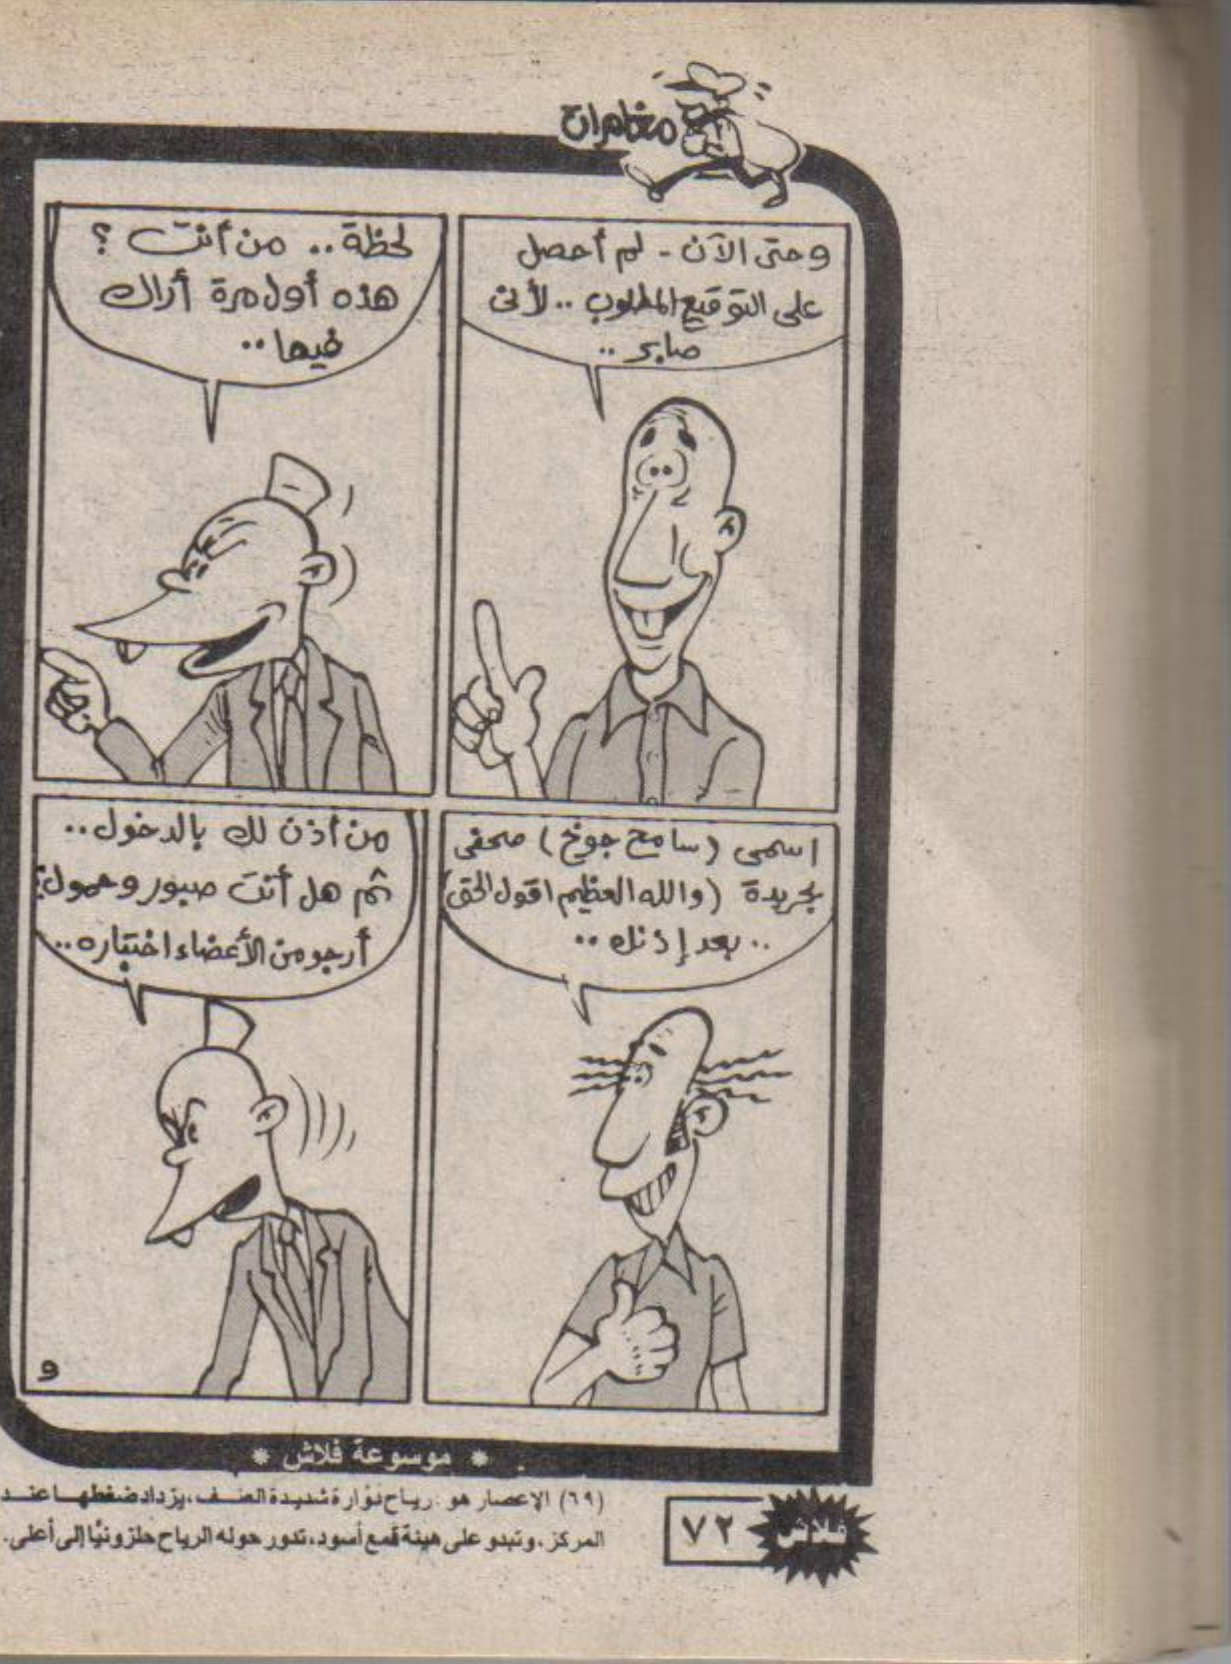 مغامرات
وحتى الآن - لم أحصل
على التوقيع المطلوب .. لأنى
صابر ..
لحظة .. من أنت ؟
هذه أول مرة أراك
فيها ..
اسمى (سامح جوخ) صحفى
بجريدة (والله العظيم اقول الحق)
.. بعد إذنك ..
من أذن لك بالدخول ..
ثم هل أنت صبور وحمول؟
أرجو من الأعضاء اختباره ..
و
* موسوعة فلاش *
(٦٩) الإعصار هو : رياح دوّارة شديدة العنــف ، يزداد ضغطهــا عنــد
المركز ، وتبدو على هيئة قمع أسود ، تدور حوله الرياح حلزونيًا إلى أعلى .
٧٢
فلاش